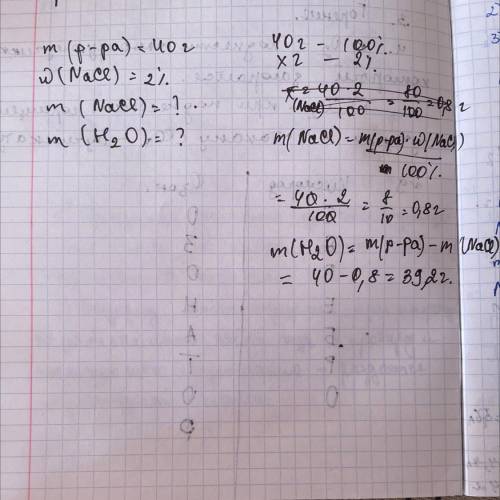 m (р-ра) = 40 г
ω (NaCl) = 2%.
m (NaCl) = ?
m (H₂O) = ?
40 г – 100%.
x г – 2%
x = 40 · 2 / 100 = 80 / 100 = 0,8 г
(NaCl)
m(NaCl) = m(р-ра) · ω(NaCl) / 100%.
= 40 · 2 / 100 = 8 / 10 = 0,8 г
m(H₂O) = m(р-ра) – m(NaCl)
= 40 – 0,8 = 39,2 г.